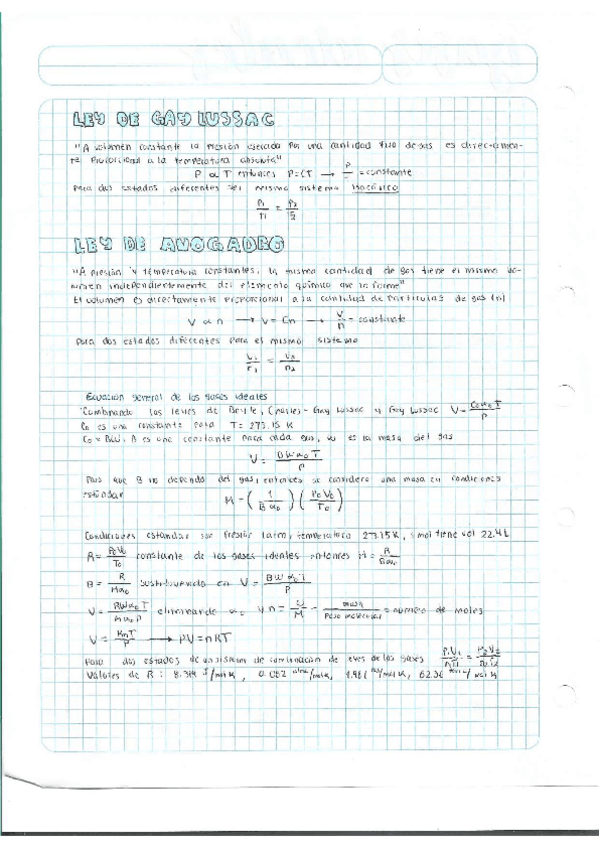 LEY DE GAY LUSSAC
"A volumen constante la presión ejercida por una cantidad fija de gas es directamen-
te proporcional a la temperatura absoluta"
P ∝ T entonces P=CT → P/T = constante
Para dos estados diferentes del mismo sistema isocórico
P1/T1 = P2/T2
LEY DE AVOGADRO
"A presión y temperatura constantes, la misma cantidad de gas tiene el mismo vo-
lumen independientemente del elemento químico que lo forme"
El volumen es directamente proporcional a la cantidad de partículas de gas (n)
V ∝ n → V = Cn → V/n = constante
para dos estados diferentes para el mismo sistema
V1/n1 = V2/n2
Ecuación general de los gases ideales
Combinando las leyes de Boyle, Charles - Gay Lussac y Gay Lussac V = C0α0T/P
C0 es una constante para T = 273.15 K
C0 = BW, B es una constante para cada gas, W es la masa del gas
V = BWα0T/P
Para que B no dependa del gas, entonces se considera una masa en condiciones
estándar M = (1/Bα0)(P0V0/T0)
Condiciones estándar son presión 1 atm, temperatura 273.15 K, 1 mol tiene vol 22.4 L
R = P0V0/T0 constante de los gases ideales entonces M = R/Bα0
B = R/Mα0 sustituyendo en V = BWα0T/P
V = RWα0T/Mα0P eliminando α0 y n = W/M = masa/Peso molecular = número de moles
V = RnT/P → PV = nRT
Para dos estados de un sistema de combinación de leyes de los gases P1V1/n1T1 = P2V2/n2T2
Valores de R: 8.314 J/mol K, 0.082 atm L/mol K, 1.987 cal/mol K, 62.36 torr L/mol K